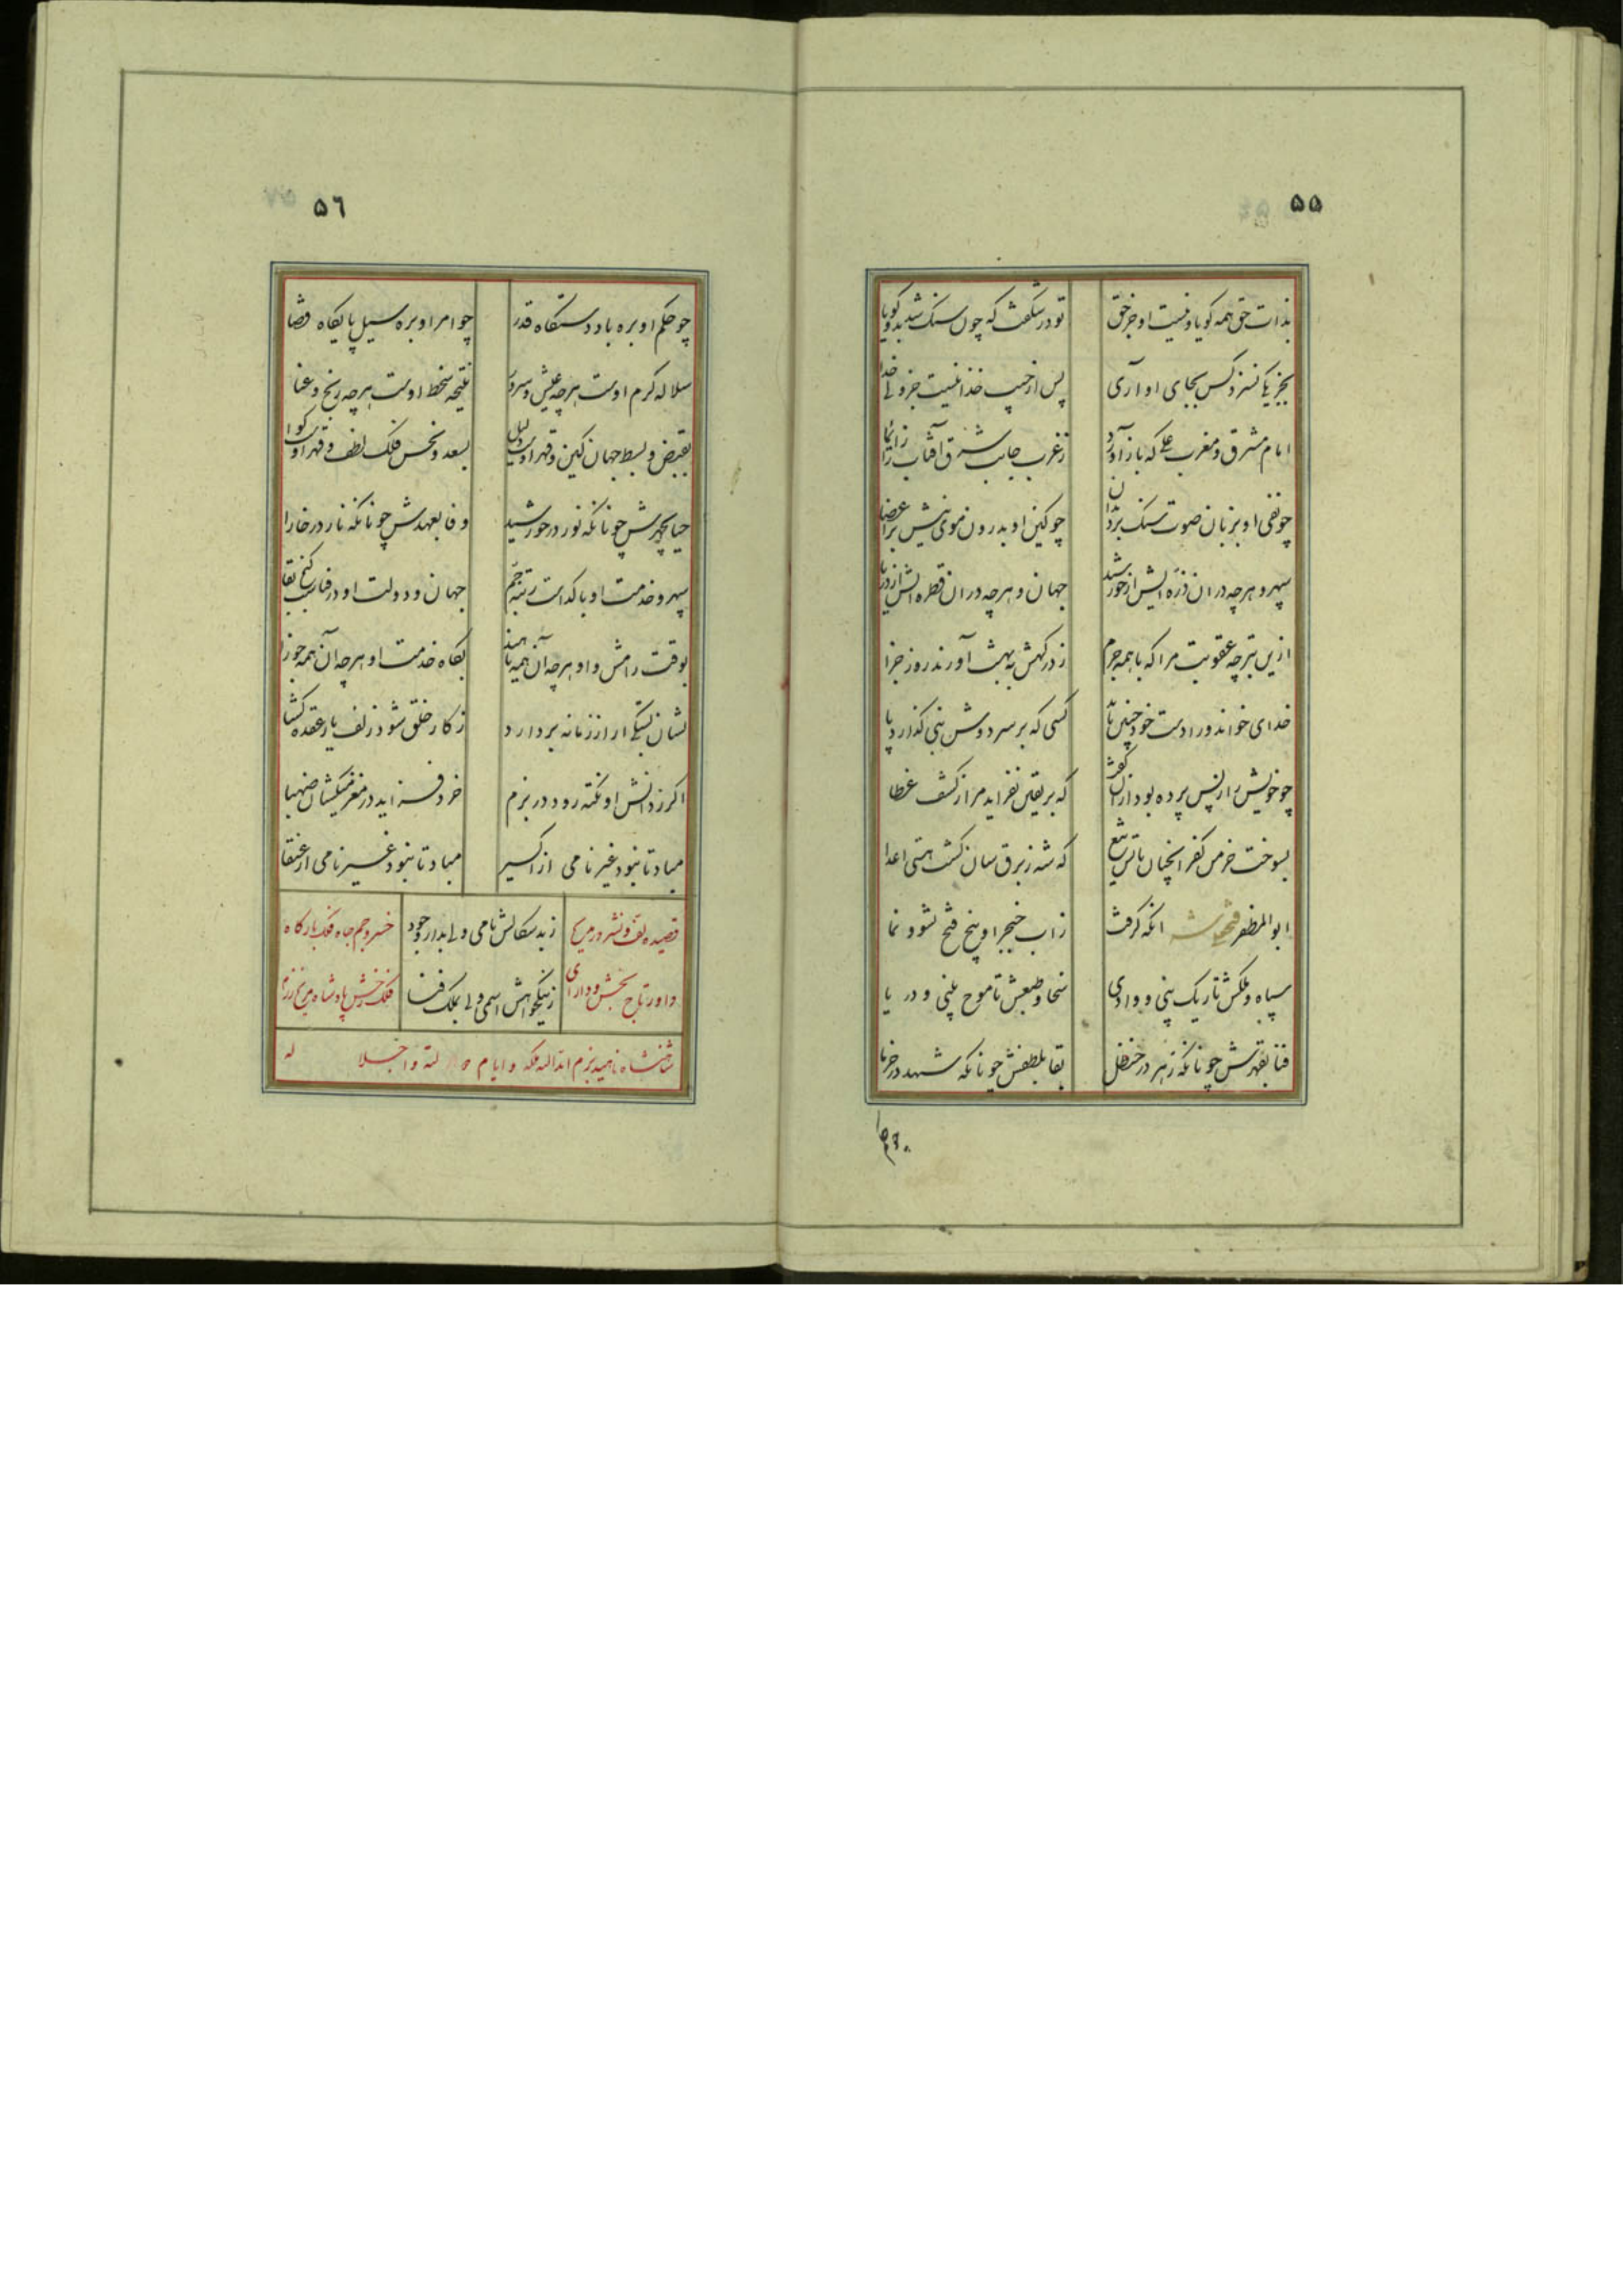 ۵۵
بذات حق همه گویا و نیست او جز حق
تو در شگفت که چون سنک شد بدو گویا
کس بجای او آری
پس از حبیب خدا نیست جز ولی خدا
امام مشرق و مغرب علی که باز آورد
ز غرب جانب شرق آفتاب را
چو نفی او بزبان صوت سنک بر دندان
چو کین او بدرون موی نیش بر اعضا
سپهر و هرچه در ان ذره ایش از خورشید
جهان و هرچه در ان قطره ایش از دریا
ازین بتر چه عقوبت مرا که با همه جرم
ز درگهش به بهشت آورند روز جزا
خدای خواند ور ا دست خود چنین باید
کسی که بر سر دوش نبی گذارد پا
چو خویش را ز پس پرده بود از آن گفت
که بر یقین نفزاید مرا ز کشف غطا
بسوخت خرمن کفر انچنان باتش تیغ
که شه ز برق سنان کشت هستی اعدا
ابوالمظفر فتحعلی شه انکه گرفت
ز اب خنجر او بیخ فتح نشو و نما
سپاه و ملکش تا ریک بینی و وادی
سخا و طبعش تا موج بینی و دریا
فنا بقهرش چونانکه زهر در حنظل
بقا بلطفش چونانکه شهد در خرما
۵۶
چو حکم او بره باد دستگاه قدر
چو امر او بره سیل پایگاه قضا
سلاله کرم اوست هرچه عیش و سرور
نتیجه سخط اوست هرچه رنج و عنا
بقبض و بسط جهان کین و مهر اوست دلیل
بسعد و نحس فلک لطف و قهر اوست گوا
حیا بچهرش چونانکه نور در خورشید
وفا بعهدش چونانکه نار در خارا
سپهر و خدمت او با گدا رتبه جم
جهان و دولت او در فنا کنج بقا
بوقت رامش و او هرچه آن همه ناهید
بگاه خدمت او هرچه آن همه جوزا
نشان بستگی ار از زمانه بردارد
ز کار خلق شود زلف یار عقده گشا
اگر ز دانش او نکته رود در بزم
خرد فزاید در مغز میکشان صهبا
مباد تا نبود غیر نامی از اکسیر
مباد تا نبود غیر نامی از عنقا
ز بد سگالش نامی ولی بدار وجود
ز نیکخواهش اسمی ولی بملک فنا
قصیده لف و نشر در مدح
خسرو جم جاه فلک بارگاه
داور تاج بخش و دارای
فلک رخش پادشاه مریخ رزم
شاهنشاه ناهید بزم ابدالله ملکه و ایام دولته و اجلا له